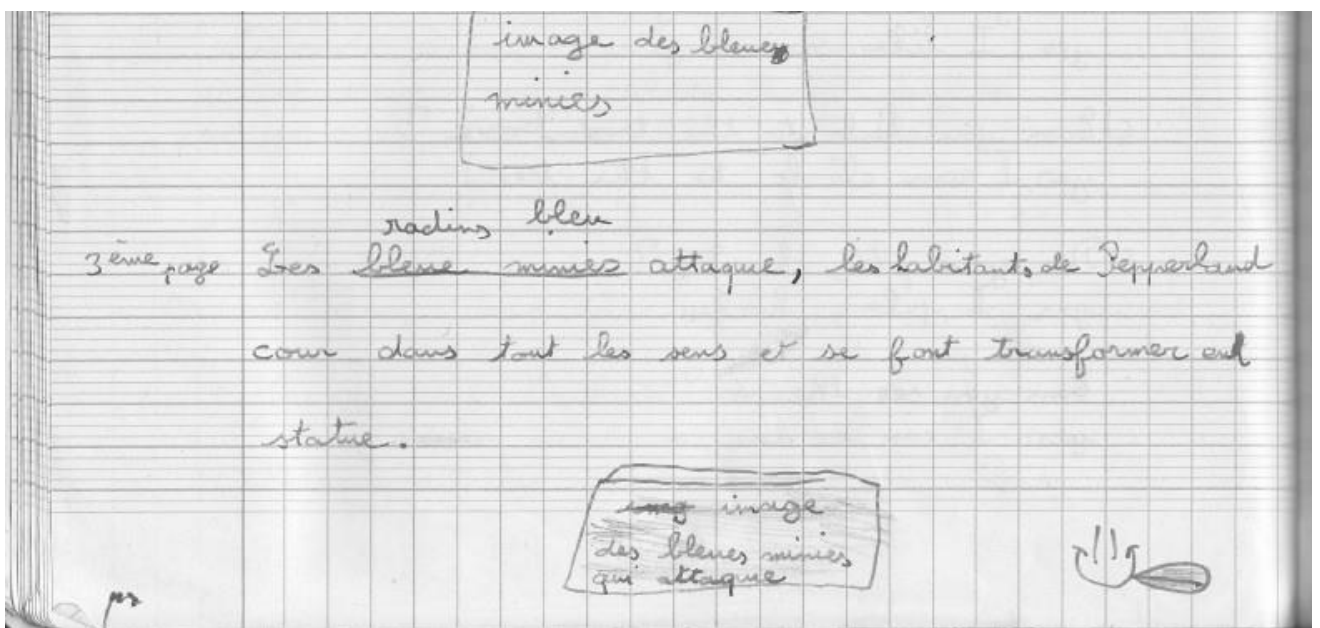 image des bleues
minies
radins bleu
3ème page Les bleue minies attaque, les habitants de Pepperland
cour dans tout les sens et se font transformer en
statue.
image
des bleues minies
qui attaque